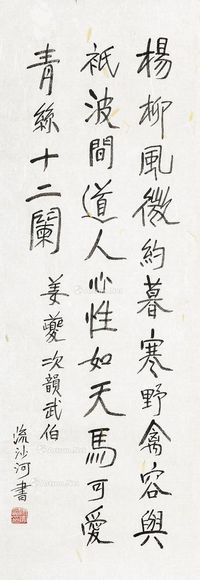 楊柳風微約暮寒野禽容與
祇波間道人心性如天馬可愛
青絲十二闌
姜夔次韻武伯
流沙河書